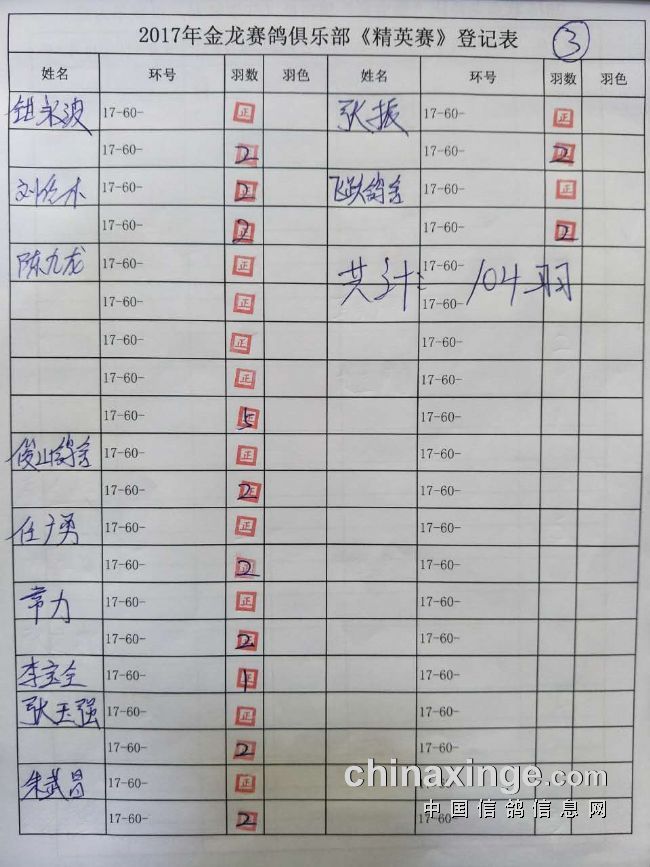 2017年金龙赛鸽俱乐部《精英赛》登记表 ③
姓名 环号 羽数 羽色 姓名 环号 羽数 羽色
17-60- 正 张振 17-60- 正
17-60- 正 2 17-60- 正 2
17-60- 正 2 飞跃鸽舍 17-60- 正
17-60- 正 2 17-60- 正 2
陈九龙 17-60- 正 17-60-
共计: 104羽
17-60- 正 17-60-
17-60- 正 17-60-
17-60- 正 17-60-
17-60- 正 5 17-60-
俊山鸽舍 17-60- 正 17-60-
17-60- 正 2 17-60-
任广勇 17-60- 正 17-60-
17-60- 正 2 17-60-
常力 17-60- 正 17-60-
17-60- 正 2 17-60-
李宝全 17-60- 正 1 17-60-
张玉强 17-60- 正 17-60-
17-60- 正 2 17-60-
朱武昌 17-60- 正
17-60- 正 2 17-60-
chinaxinge.com
中国信鸽信息网